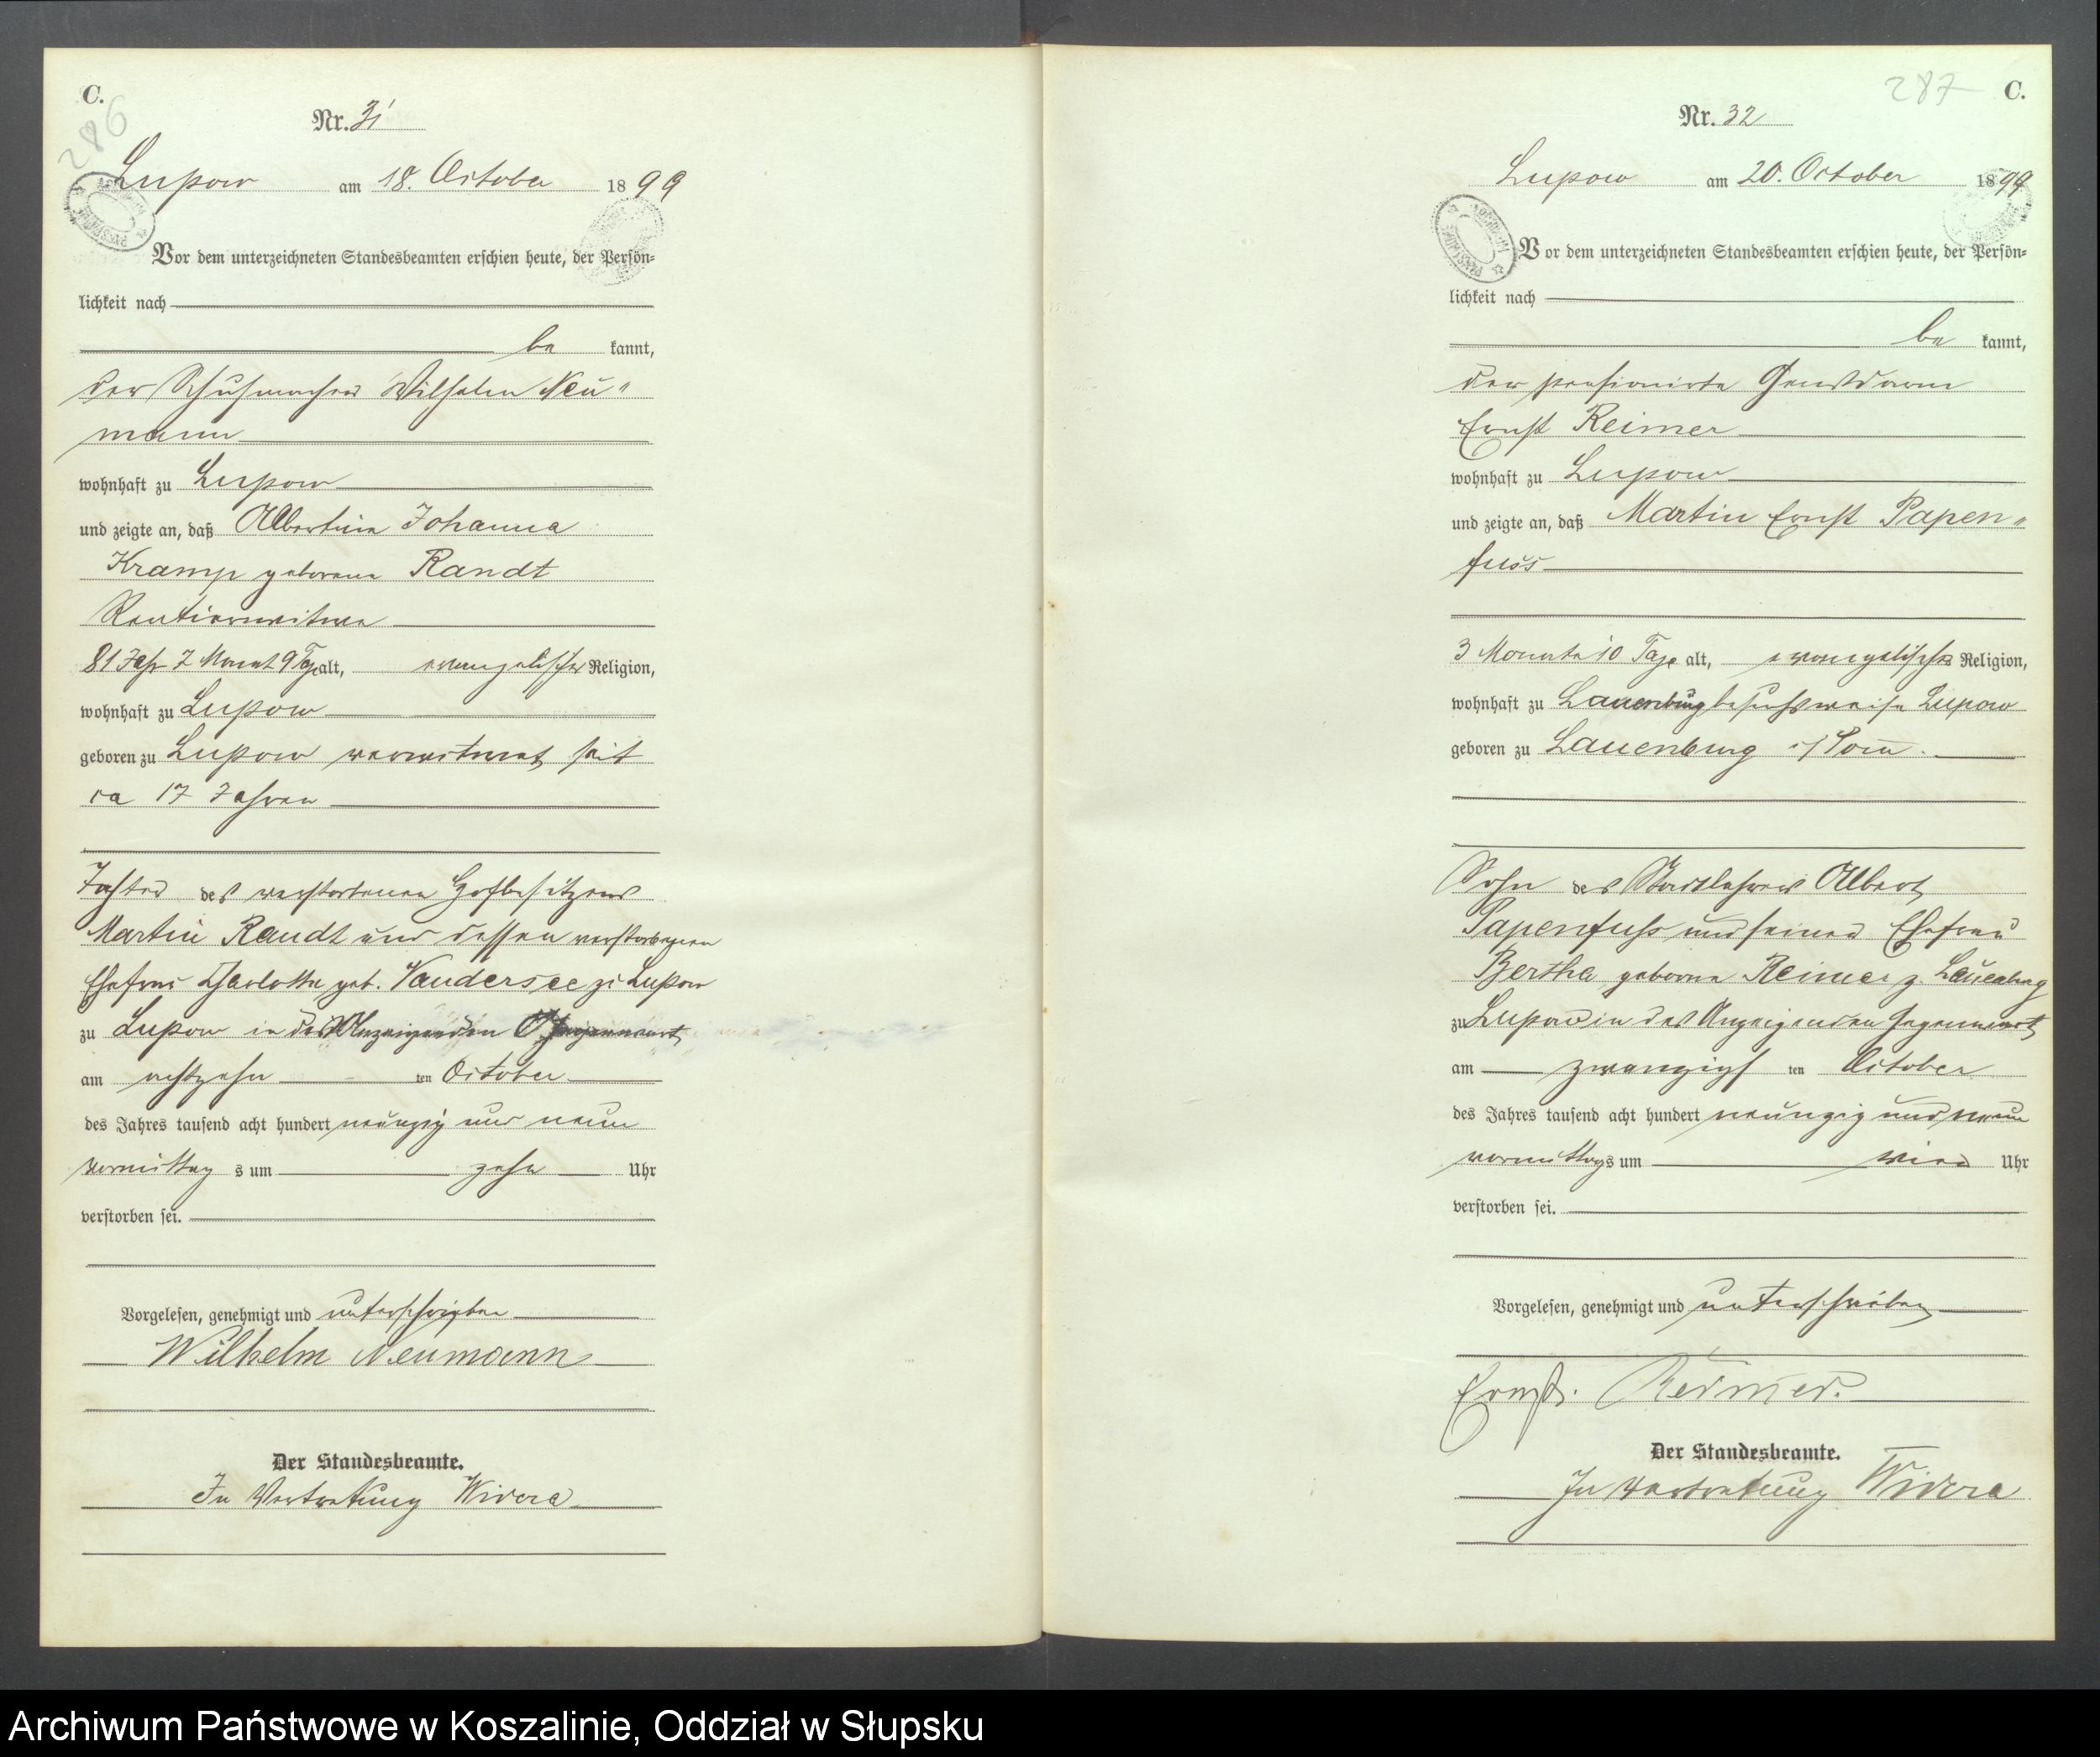 C.
286
Nr. 31
Lupow am 18. October 1899
Vor dem unterzeichneten Standesbeamten erschien heute, der Persön=
lichkeit nach
be kannt,
der Schuhmacher Wilhelm Neu"
mann
wohnhaft zu Lupow
und zeigte an, daß Albertine Johanna
Kramp geborene Randt
Rentierwitwe
81 Jahr 7 Monat 9 Tage alt, evangelischer Religion,
wohnhaft zu Lupow
geboren zu Lupow verwitwet seit
ca 17 Jahren
Tochter des verstorbenen Hofbesitzers
Martin Randt und dessen verstorbenen
Ehefrau Charlotte geb. Vandersee zu Lupow
zu Lupow in des Anzeigenden Gegenwart
am achtzehn ten October
des Jahres tausend acht hundert neunzig und neun
vormittag s um zehn Uhr
verstorben sei.
Vorgelesen, genehmigt und unterschrieben
Wilhelm Neumann
Der Standesbeamte.
In Vertretung Widera
287
C.
Nr. 32
Lupow am 20. October 1899
Vor dem unterzeichneten Standesbeamten erschien heute, der Persön=
lichkeit nach
be kannt,
der pensionirte Gensdarm
Ernst Reimer
wohnhaft zu Lupow
und zeigte an, daß Martin Ernst Papen"
fuss
3 Monate 10 Tage alt, evangelischer Religion,
wohnhaft zu Lauenburg besuchsweise Lupow
geboren zu Lauenburg i/Pom.
Sohn des Stadtlehrers Albert
Papenfuss und seiner Ehefrau
Bertha geborne Reimer z. Lauenburg
zu Lupow in des Anzeigenden Gegenwart
am zwanzigs ten October
des Jahres tausend acht hundert neunzig und neun
vormittags um vier Uhr
verstorben sei.
Vorgelesen, genehmigt und unterschrieben
Ernst Reimer.
Der Standesbeamte.
In Vertretung Widera
Archiwum Państwowe w Koszalinie, Oddział w Słupsku